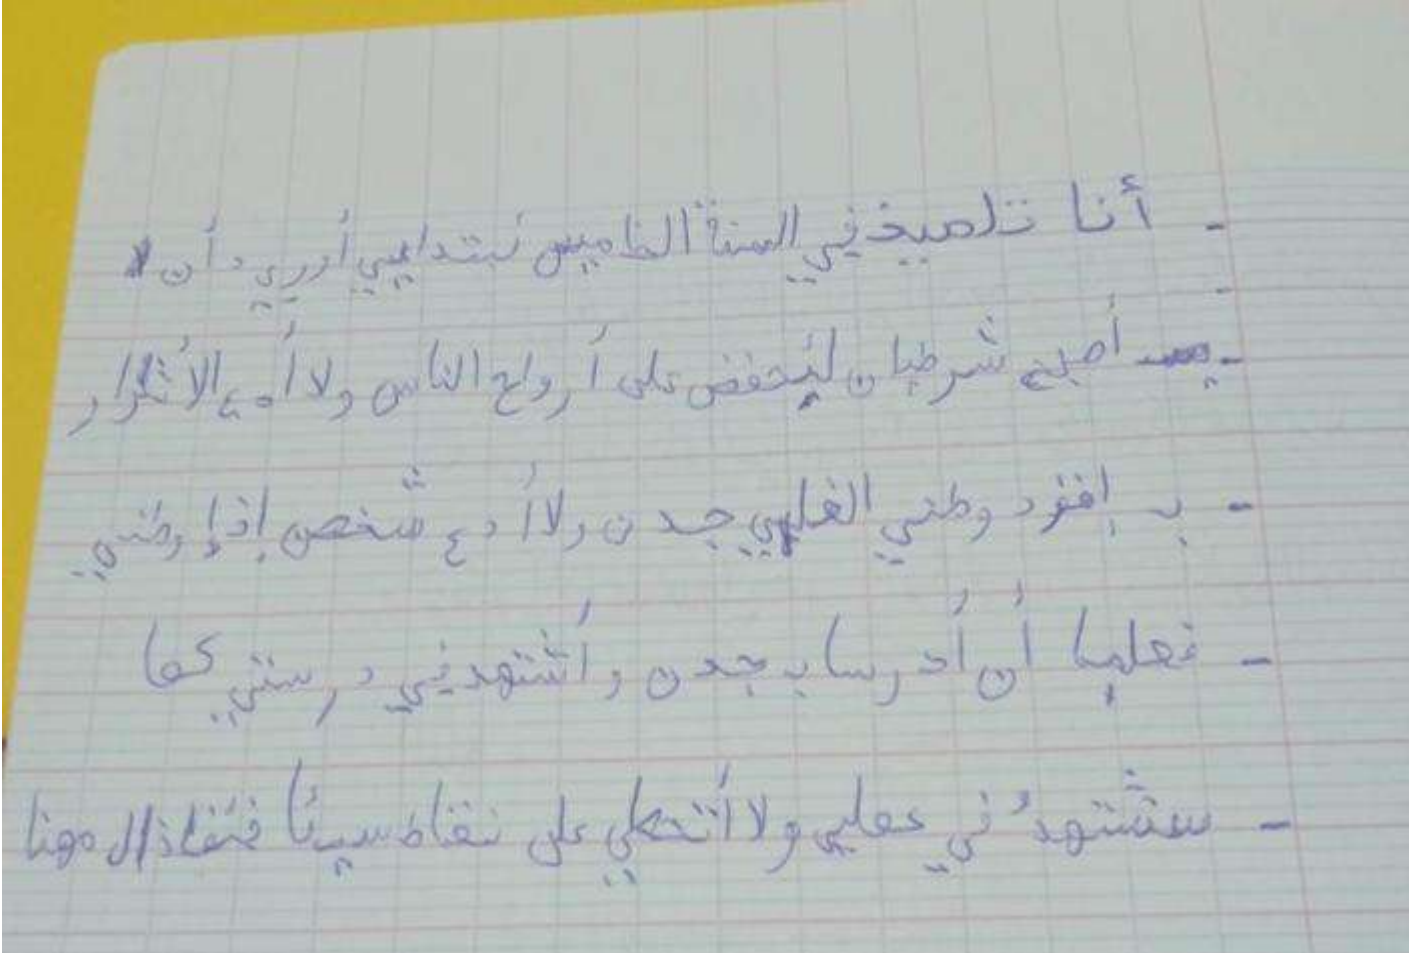 - أنا تلميذ في السنة الخاميس بتداعيي أوريد أن لا
- أصبح شرطيان ليحفض على أرواح الناس ولا أدع الأشرار
- ب إفقود وطني الغليي جدن ولا أدع شخص إذا وطني
- فعليا أن أدرسا ب جدن وأشتهد في درستي كما
- سشتهد في عملي ولا أتحطي على نقاط سيئا فهاذا المهنا